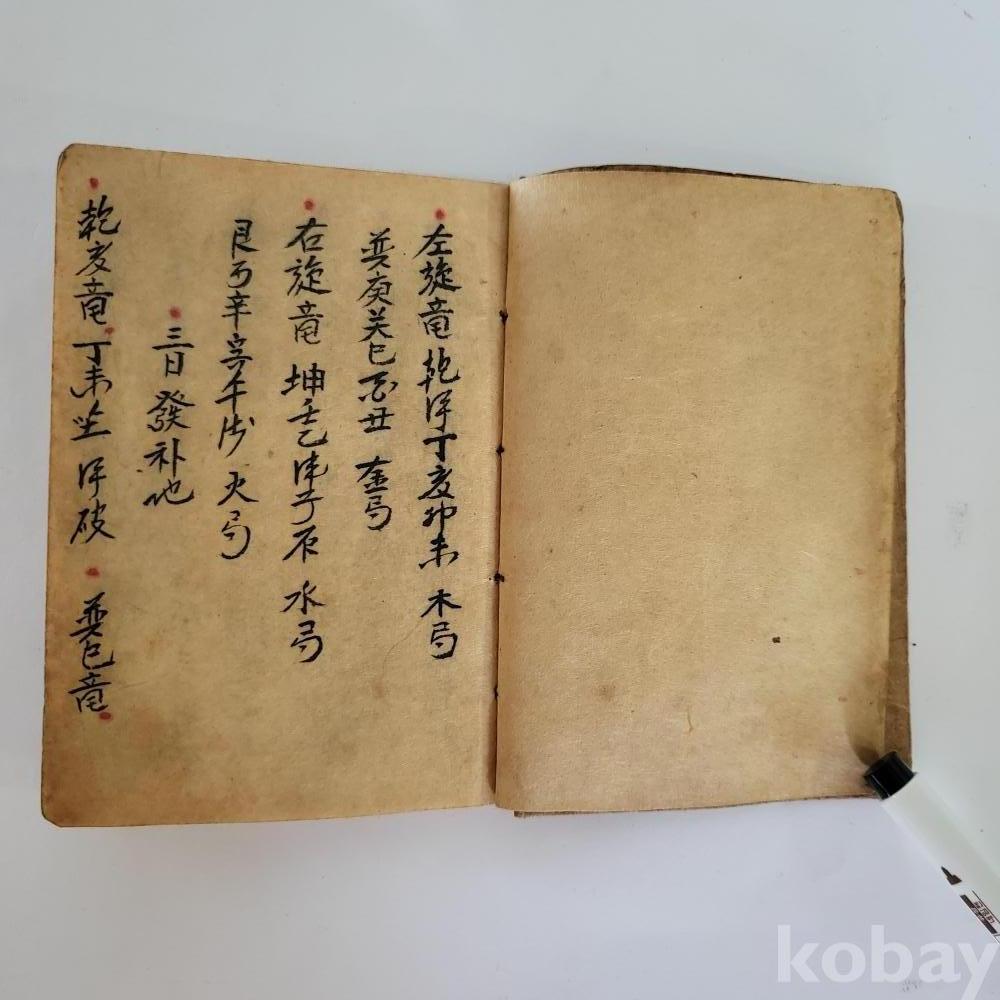 左旋竜 乾甲丁亥卯未 木局
巽庚癸巳酉丑 金局
右旋竜 坤壬乙申子辰 水局
艮丙辛寅午戌 火局
三日發补地
乾亥竜 丁未坐 破 巽巳竜
kobay